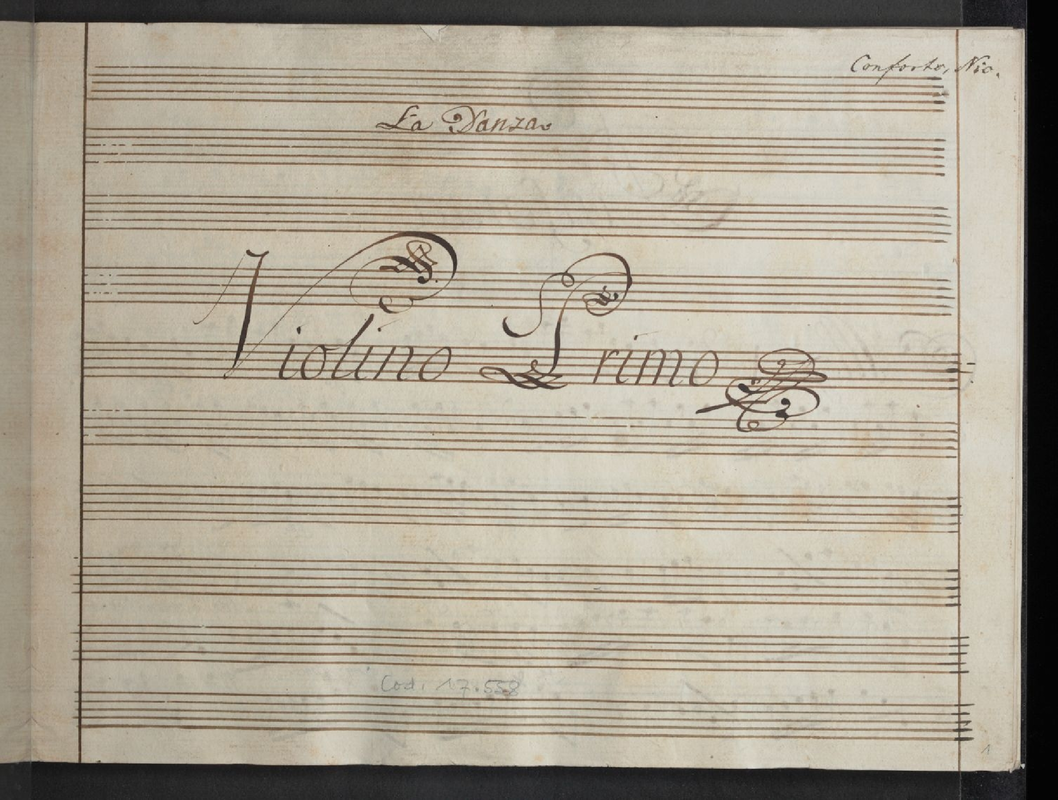 Conforto, Nic.
La Danza.
Violino Primo
Cod. 17.558
1